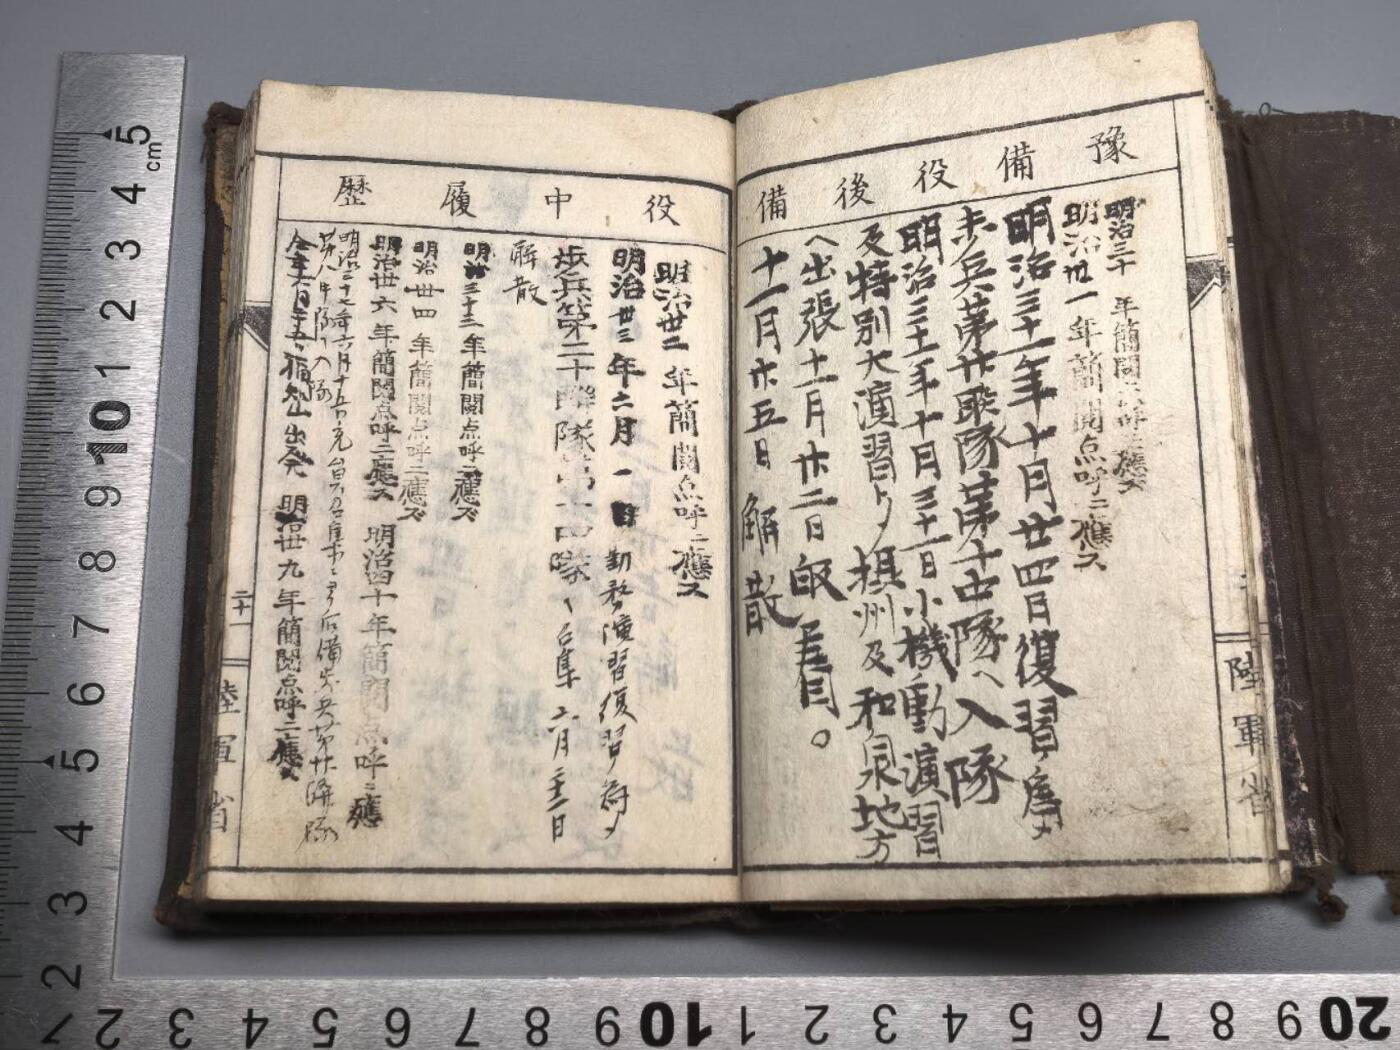 豫備役後備
明治三十年簡閲点呼ニ應ス
明治丗一年簡閲点呼ニ應ス
明治三十一年十月廿四日復習ノ為メ
歩兵第廿聯隊第十中隊ヘ入隊
明治三十一年十月三十一日小機動演習
及特別大演習ノ為メ摂州及和泉地方
ヘ出張十一月廿二日皈
十一月廿五日解散
役中履歴
明治丗二年簡閲点呼ニ應ス
明治丗三年二月一日勤務演習復習ノ為メ
歩兵第二十聯隊第十四隊ヘ召集二月二十二日
解散
明治三十三年簡閲点呼ニ應ス
明治丗四年簡閲点呼ニ應ス
明治丗六年簡閲点呼ニ應ス 明治四十年簡閲点呼ニ應
明治三十七年六月十五日充員召集ニヨリ后備歩兵第廿聯隊
第八中隊ヘ入隊
仝年六月廿五日福知山出発 明治丗九年簡閲点呼ニ應ス
二十一
陸軍省
陸軍省